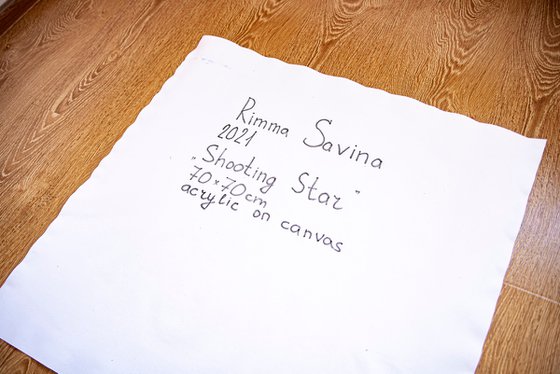 Rimma Savina
2021
„Shooting Star"
70×70cm
acrylic on canvas